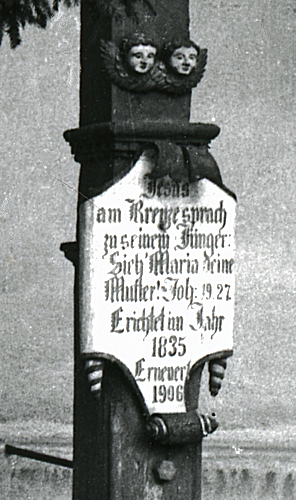 Jesus
am Kreuze sprach
zu seinem Jünger:
Sieh' Maria deine
Mutter! Joh: 19. 27.
Erichtet im Jahr
1835
Erneuert
1906